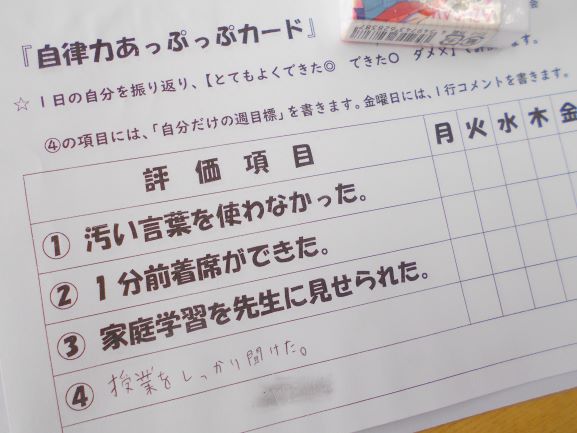 『自律力あっぷっぷカード』
☆ 1日の自分を振り返り、【とてもよくできた◎ できた○ ダメ×】で
ます。
④の項目には、「自分だけの週目標」を書きます。金曜日には、1行コメントを書きます。
評価項目 月 火 水 木 金
① 汚い言葉を使わなかった。
② 1分前着席ができた。
③ 家庭学習を先生に見せられた。
④ 授業をしっかり聞けた。